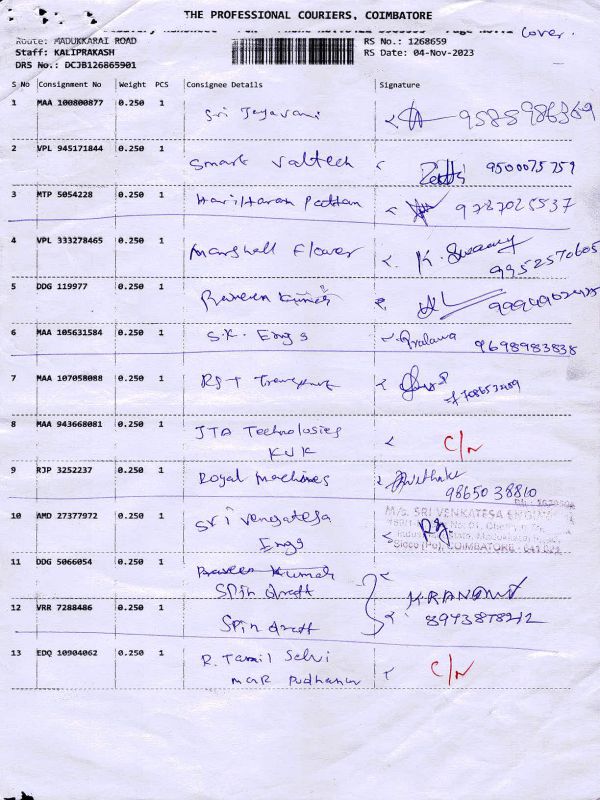 THE PROFESSIONAL COURIERS, COIMBATORE
Cover.
Route: MADUKKARAI ROAD
Staff: KALIPRAKASH
DRS No.: DCJB126865901
RS No.: 1268659
RS Date: 04-Nov-2023
S No Consignment No Weight PCS Consignee Details Signature
1 MAA 100800877 0.250 1 Sri 9585986369
2 VPL 945171844 0.250 1 Smart Valtech 9500075759
3 MTP 5054228 0.250 1 Hariharan 9787028537
4 VPL 333278465 0.250 1 Marshall Flower K.
9952570605
5 DDG 119977 0.250 1 Raveen Kumar
6 MAA 105631584 0.250 1 S.K. Engs 9698983838
7 MAA 107058088 0.250 1 Transport
8 MAA 943668081 0.250 1 JTA Technologies C/N
KUK
9 RJP 3252237 0.250 1 Royal Machines
9865038810
10 AMD 27377972 0.250 1 Sri Vengatesa
Engs
M/s. SRI VENKATESA
COIMBATORE - 641 021
11 DDG 5066054 0.250 1 Praveen Kumar
Spin draft
12 VRR 7288486 0.250 1 Spin draft
13 EDQ 10904062 0.250 1 R. Tamil Selvi C/N